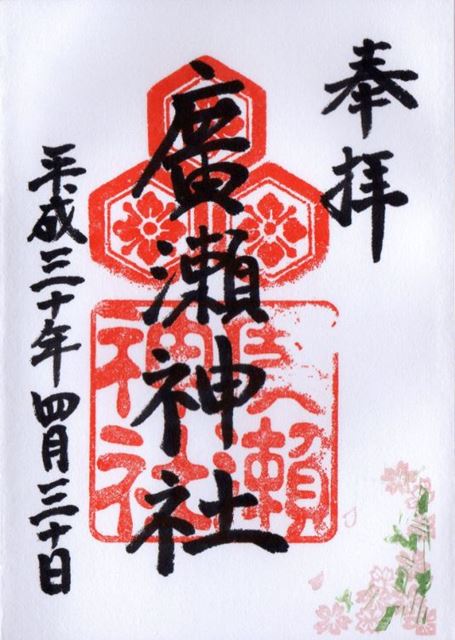 奉拝
廣瀬神社
平成三十年四月三十日
廣瀬
神社